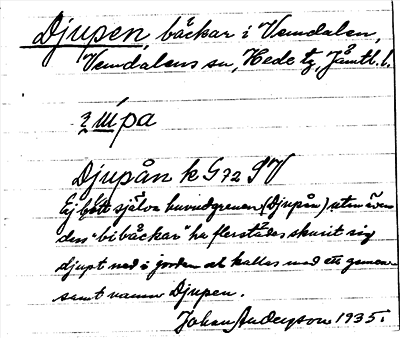 Djupen, bäckar i Vemdalen,
Vemdalens sn, Hede tg, Jämtl. l.
Djupån k G72 SV
Ej blott själva huvudgrenen (Djupån) utan även
dess "bibäckar" ha flerstädes skurit sig
djupt ned i jorden och kallas med ett gemen-
samt namn Djupen.
Johan Andersson 1935.